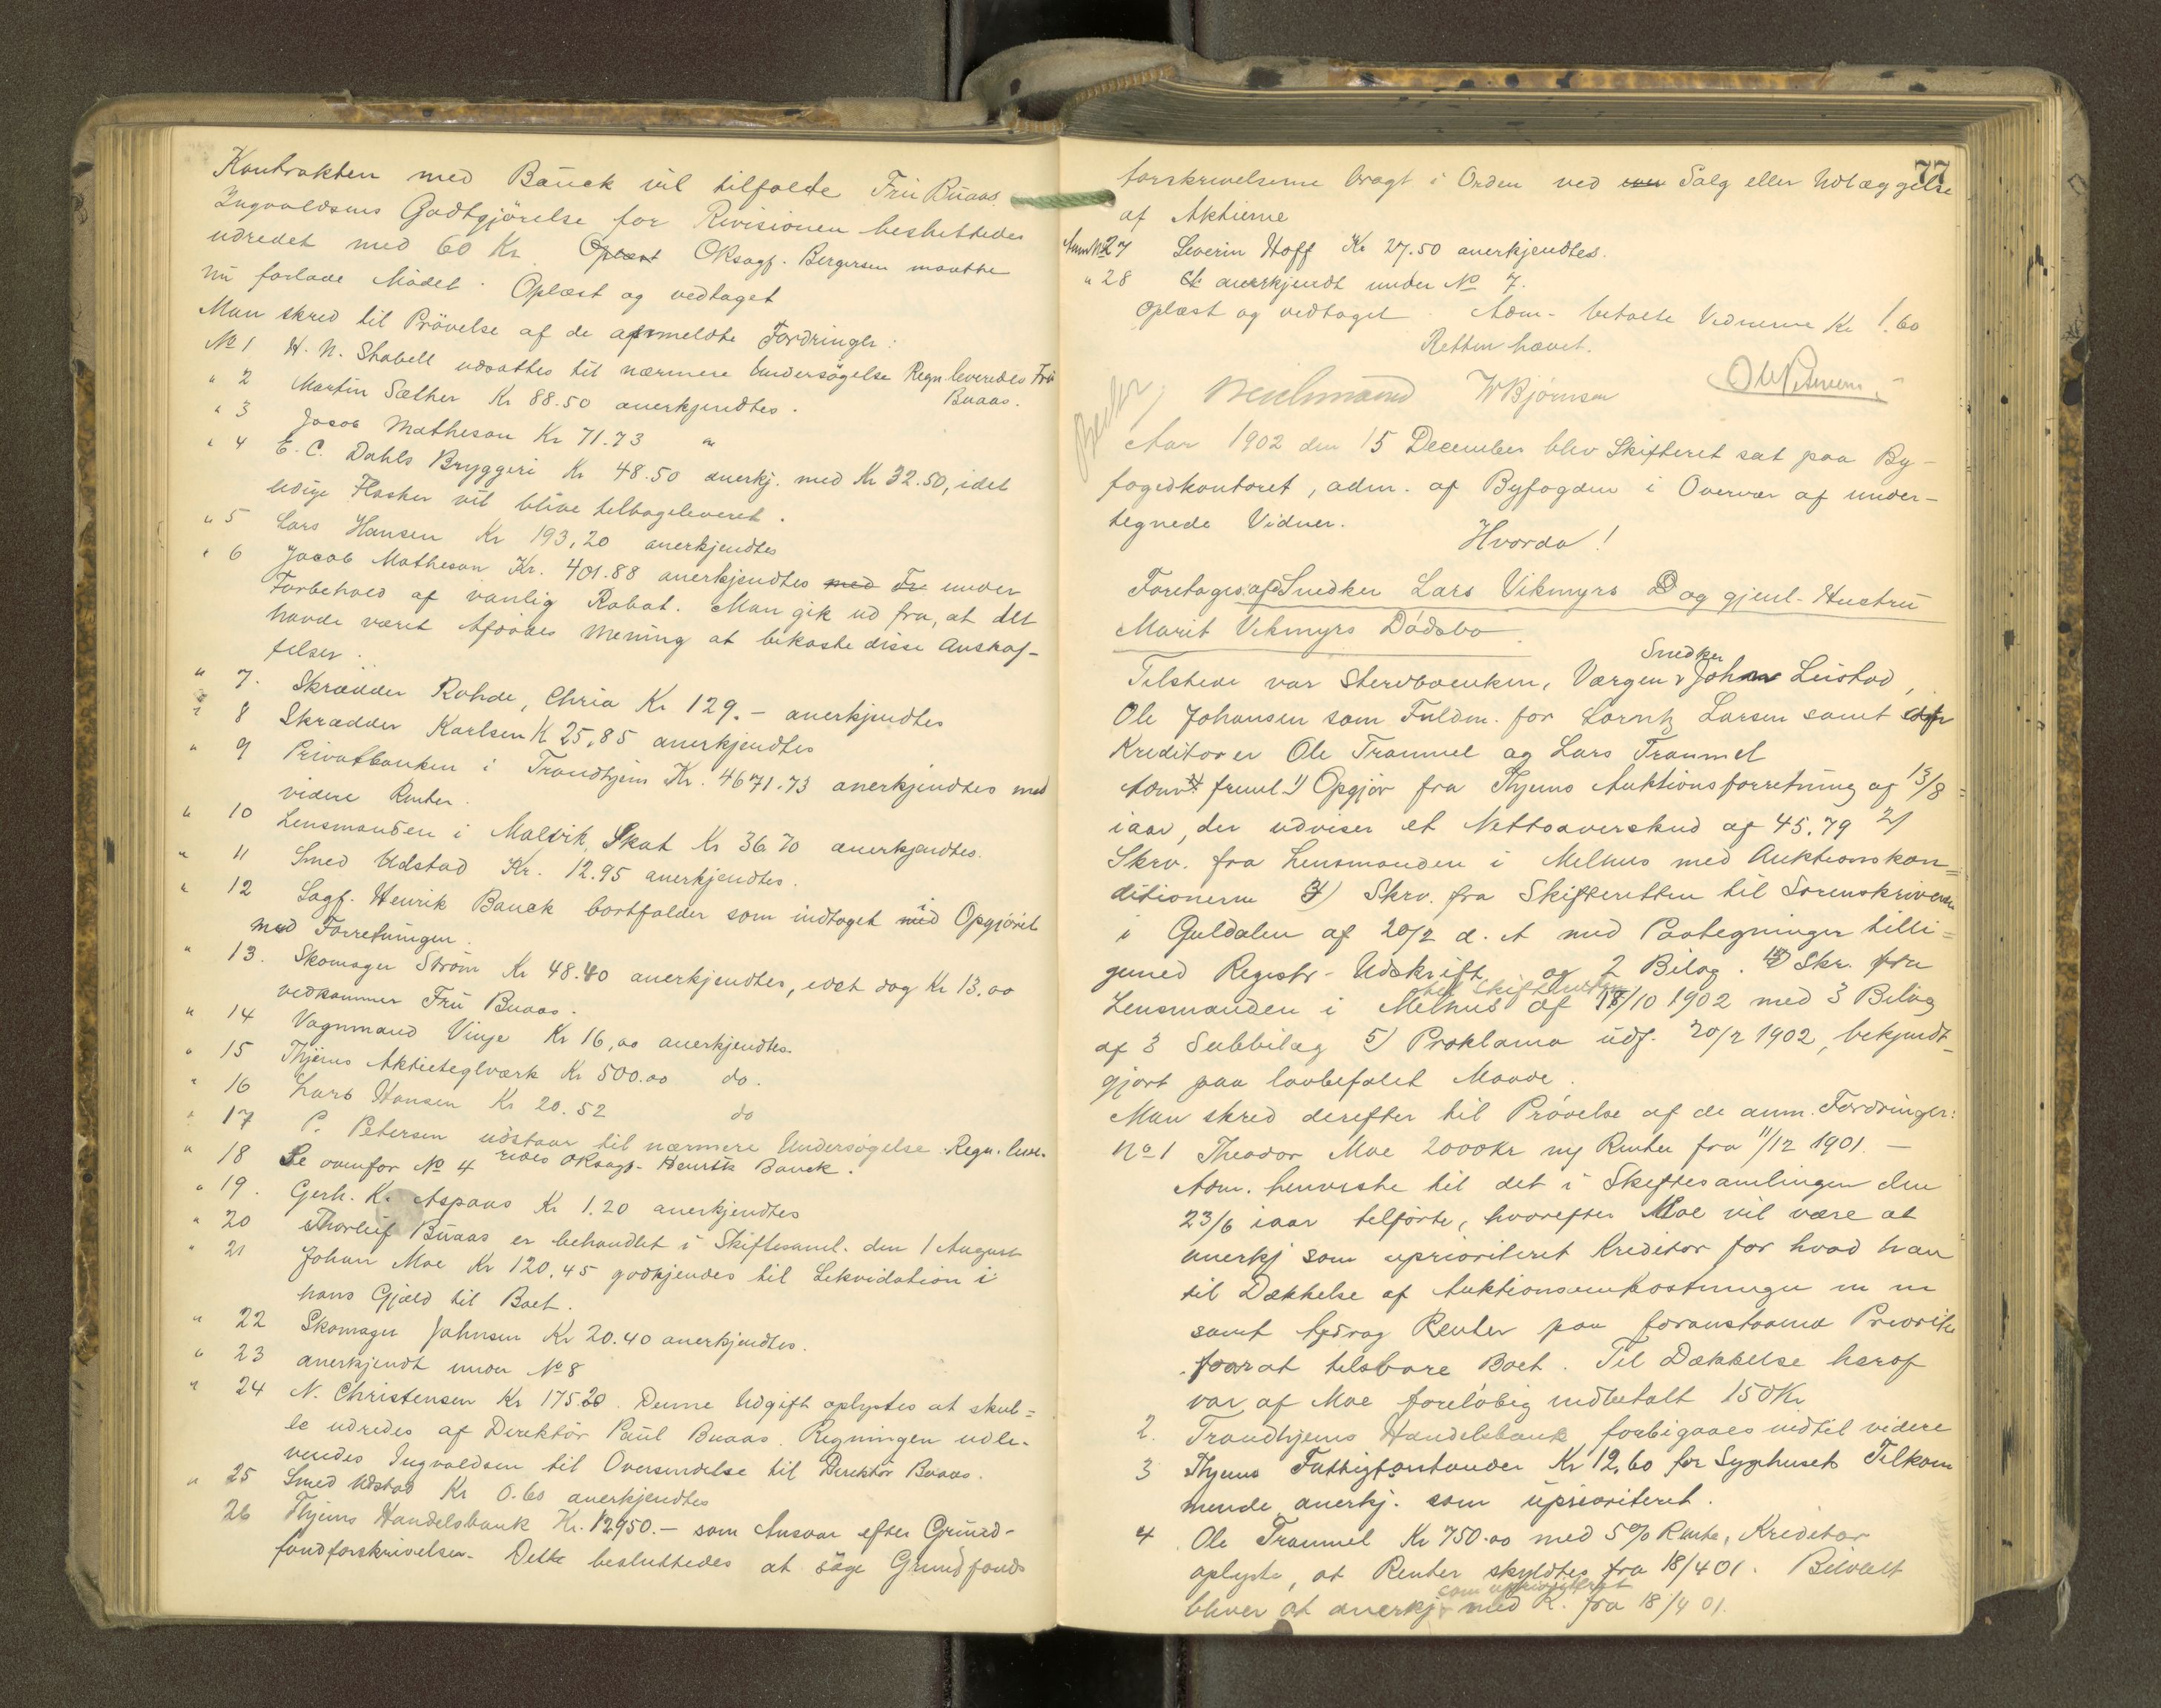 Kontrakten med Bauck vil tilfalde Fru Buaas.
Ingvaldsens Godtgjörelse for Revisionen besluttedes
udredet med 60 Kr. Oplæst OKsagf. Bergersen maatte
nu forlade Mödet. Oplæst og vedtaget
Man skred til Prövelse af de anmeldte Fordringer:
No 1 H. N. Stabell udsattes til nærmere Undersögelse Regn leveredes Fru
Buaas.
" 2 Martin Sæther Kr 88.50 anerkjendtes.
" 3 Jacob Matheson Kr 71.73 "
" 4 E. C. Dahls Bryggeri Kr 48.50 anerkj. med Kr 32.50, idet
ledige Flasker vil blive tilbageleveret.
" 5 Lars Hansen Kr 193,20 anerkjendtes
" 6 Jacob Matheson Kr. 401.88 anerkjendtes med Fr under
Forbehold af vanlig Rabat. Man gik ud fra, at det
havde været Afdödes Mening at bekoste disse Anskaf-
felser.
" 7. Skrædder Rohde, Chria Kr 129.- anerkjendtes
" 8 Skrædder Karlsen K 25,85 anerkjendtes
" 9 Privatbanken i Trondhjem Kr. 4671.73 anerkjendtes med
videre Renter.
" 10 Lensmanden i Malvik, Skat Kr 36.70 anerkjendtes.
" 11 Smed Udstad Kr. 12.95 anerkjendtes.
" 12 Sagf. Henrik Bauck bortfalder som indtaget i med Opgjöret
med Forretningen.
" 13. Skomager Ström Kr 48.40 anerkjendtes, idet dog Kr 13.00
vedkommer Fru Buaas.
" 14 Vognmand Vinje Kr 16,00 anerkjendtes.
" 15 Thjems Aktieteglværk Kr 500.00 do.
" 16 Lars Hansen Kr 20.52 do
" 17 P. Petersen udstaar til nærmere Undersögelse. Regn. leve-
redes OKsagf. Henrik Bauck.
" 18 Se ovenfor No 4
" 19. Gerh. K. Aspaas Kr 1.20 anerkjendtes
" 20 Thorleif Buaas er behandlet i Skiftesaml. den 1 August
" 21 Johan Moe Kr 120.45 godkjendes til Likvidation i
hans Gjæld til Boet.
" 22 Skomager Johnsen Kr 20.40 anerkjendtes.
" 23 anerkjendt under No 8
" 24 N. Christensen Kr 175.20. Denne Udgift oplystes at skul=
le udredes af Direktör Paul Buaas. Regningen udle-
veredes Ingvaldsen til Oversendelse til Direktör Buaas.
" 25 Smed Udstad Kr 0.60 anerkjendtes
26 Thjems Handelsbank Kr. 12950.- som Ansvar efter Grund-
fondforskrivelsen. Dette besluttedes at söge Grundfonds
77
forskrivelserne bragt i Orden ved Salg eller Udlæggelse
af Aktierne
Anm No 27 Severin Hoff Kr 27.50 anerkjendtes.
" 28 anerkjendt under No 7.
Oplæst og vedtaget. Adm. betalte Vidnerne Kr 1.60
Retten hævet.
W Bjørnsen
Aar 1902 den 15 December blev Skifteret sat paa By-
fogedkontoret, adm. af Byfogden i Overvær af under-
tegnede Vidner.
Hvorda!
Foretages: afd Snedker Lars Vikmyrs og gjenl. Hustru
Marit Vikmyrs Dödsbo
Snedker
Tilstede var Stervboenken, Værgen John Leistad,
Ole Johansen som Fuldm. for Lorntz Larsen samt
Kreditorer Ole Trammel og Lars Trammel
Adm. freml. 1) Opgjör fra Thjems Auktionsforretning af 13/8
iaar, der udviser et Nettooverskud af 45.79 2)
Skrv. fra Lensmanden i Melhus med Auktionskon=
ditionerne 3) Skrv. fra Skifteretten til Sorenskriveren
i Guldalen af 20/2 d. A med Paategninger tilli=
gemed Registr-Udskrift og 2 Bilag. 4) Skr. fra
til Skifteretten
Lensmanden i Melhus af 18/10 1902 med 3 Bilag
af 3 Subbilag 5) Proklama udf. 20/2 1902, bekjendt-
gjort paa lovbefalet Maade.
Man skred derefter til Prövelse af de anm. Fordringer:
No 1 Theodor Moe 2000 Kr ny Renter fra 11/12 1901. -
Adm. henviste til det i Skiftesamlingen den
23/6 iaar tilförte, hvorefter Moe vil være at
anerkj som uprioriteret Kreditor for hvad han
til Dækkelse af Auktionsomkostninger m m
samt bidrag Renter paa foranstaaende Priorite
faar at tilsvare Boet. Til Dækkelse heraf
var af Moe foreløbig indbetalt 150 Kr
2. Trondhjems Handelsbank forbigaaes indtil videre
3 Thjems Fattigforstander Kr 12.60 for Syghusets Tilkom
mende anerkj. som uprioriteret.
4 Ole Trammel Kr 750.00 med 5% Rente, Kreditor
oplyste, at Renter skyldtes fra 18/4 01. Belöbet
som uprioriteret
bliver at anerkj. med R. fra 18/4 01.